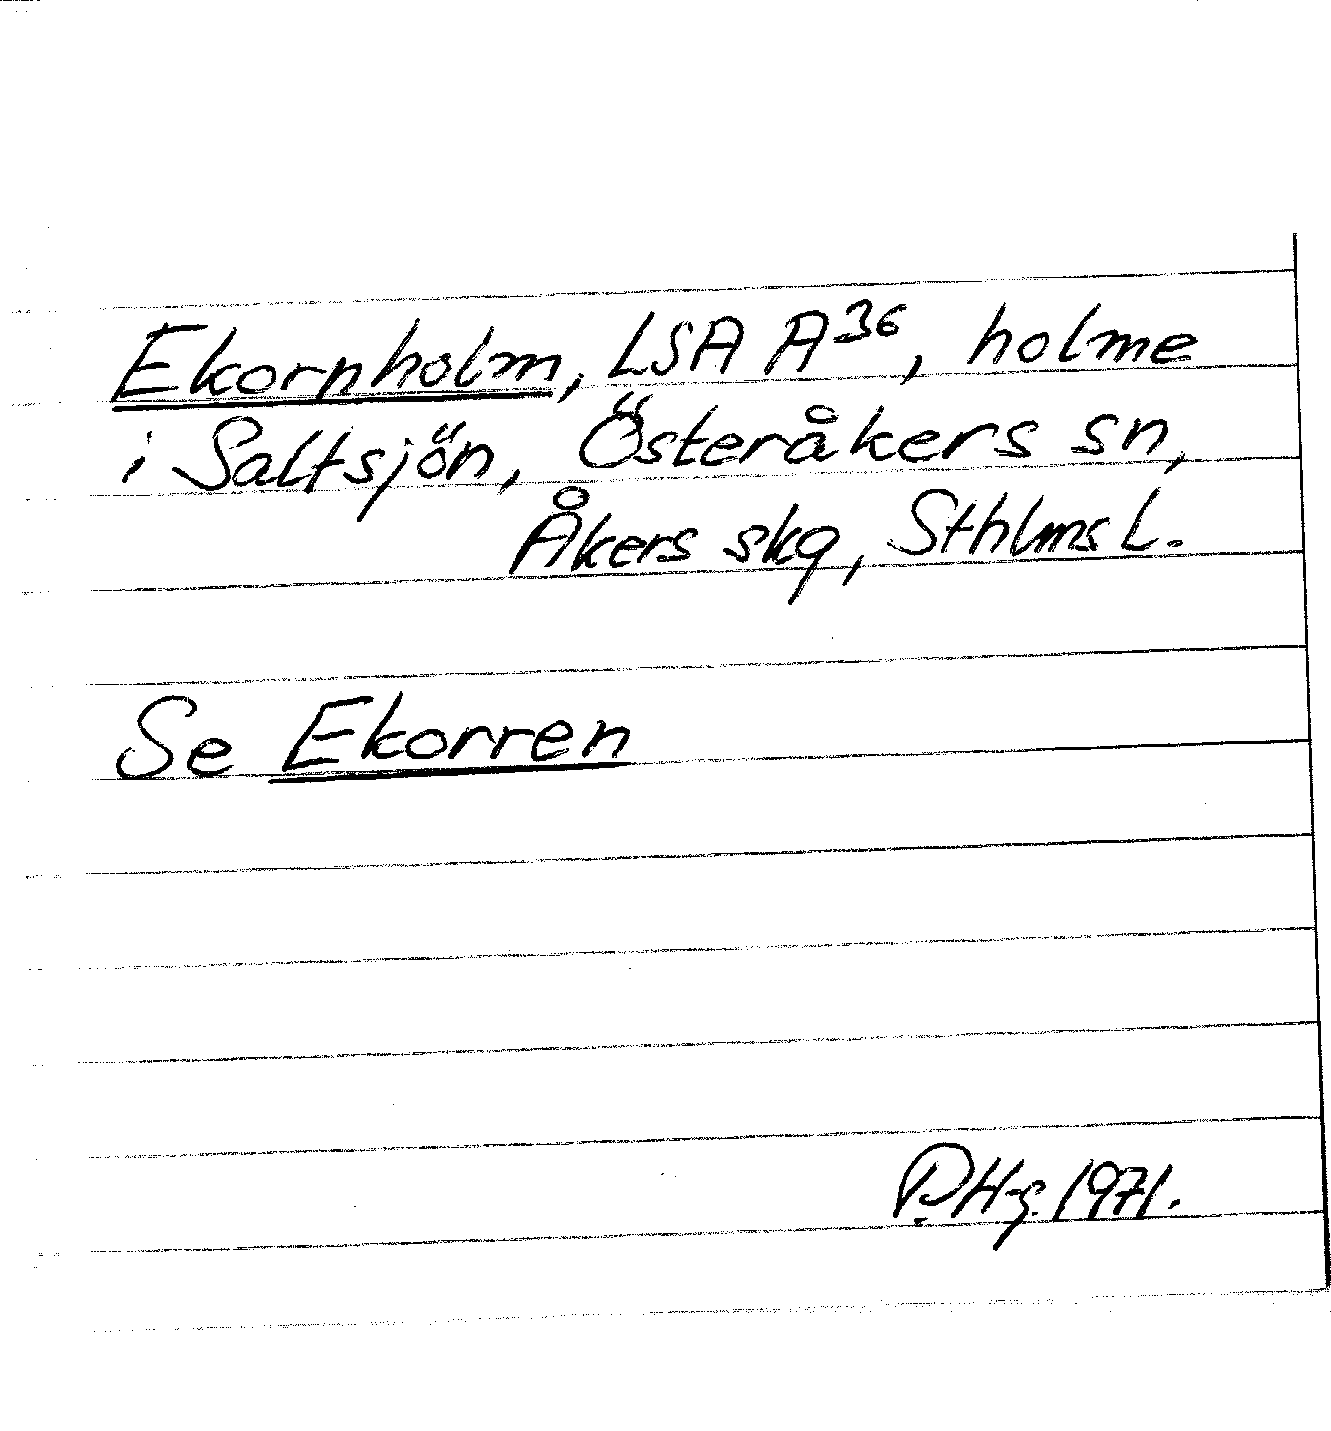 Ekornholm, LSA A36, holme
i Saltsjön, Österåkers sn,
Åkers skg, Sthlms L.
Se Ekorren
P. H-g. 1971.